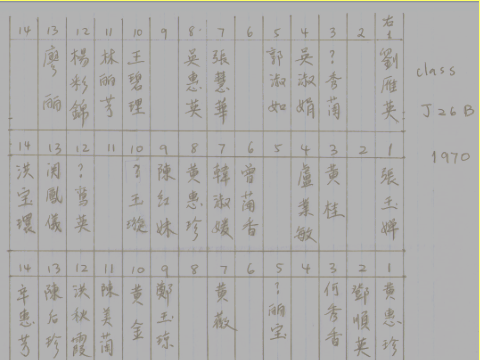 14 13 12 11 10 9 8 7 6 5 4 3 2 右1
劉雁英
?秀蘭
吳淑娟
郭淑如
張慧華
吳惠英
王碧理
林丽芎
楊彩錦
廖丽
class
J26B
1970
14 13 12 11 10 9 8 7 6 5 4 3 2 1
張玉嬋
黄桂
盧業敏
曾蘭香
韓淑媛
黄惠珍
陳紅妹
?玉璇
?鶯英
鳳儀
洪宝環
14 13 12 11 10 9 8 7 6 5 4 3 2 1
黄惠珍
鄧順英
何秀香
?丽宝
黄薇
鄭玉琼
黄金
陳美蘭
洪秋霞
陳后珍
辛惠芎